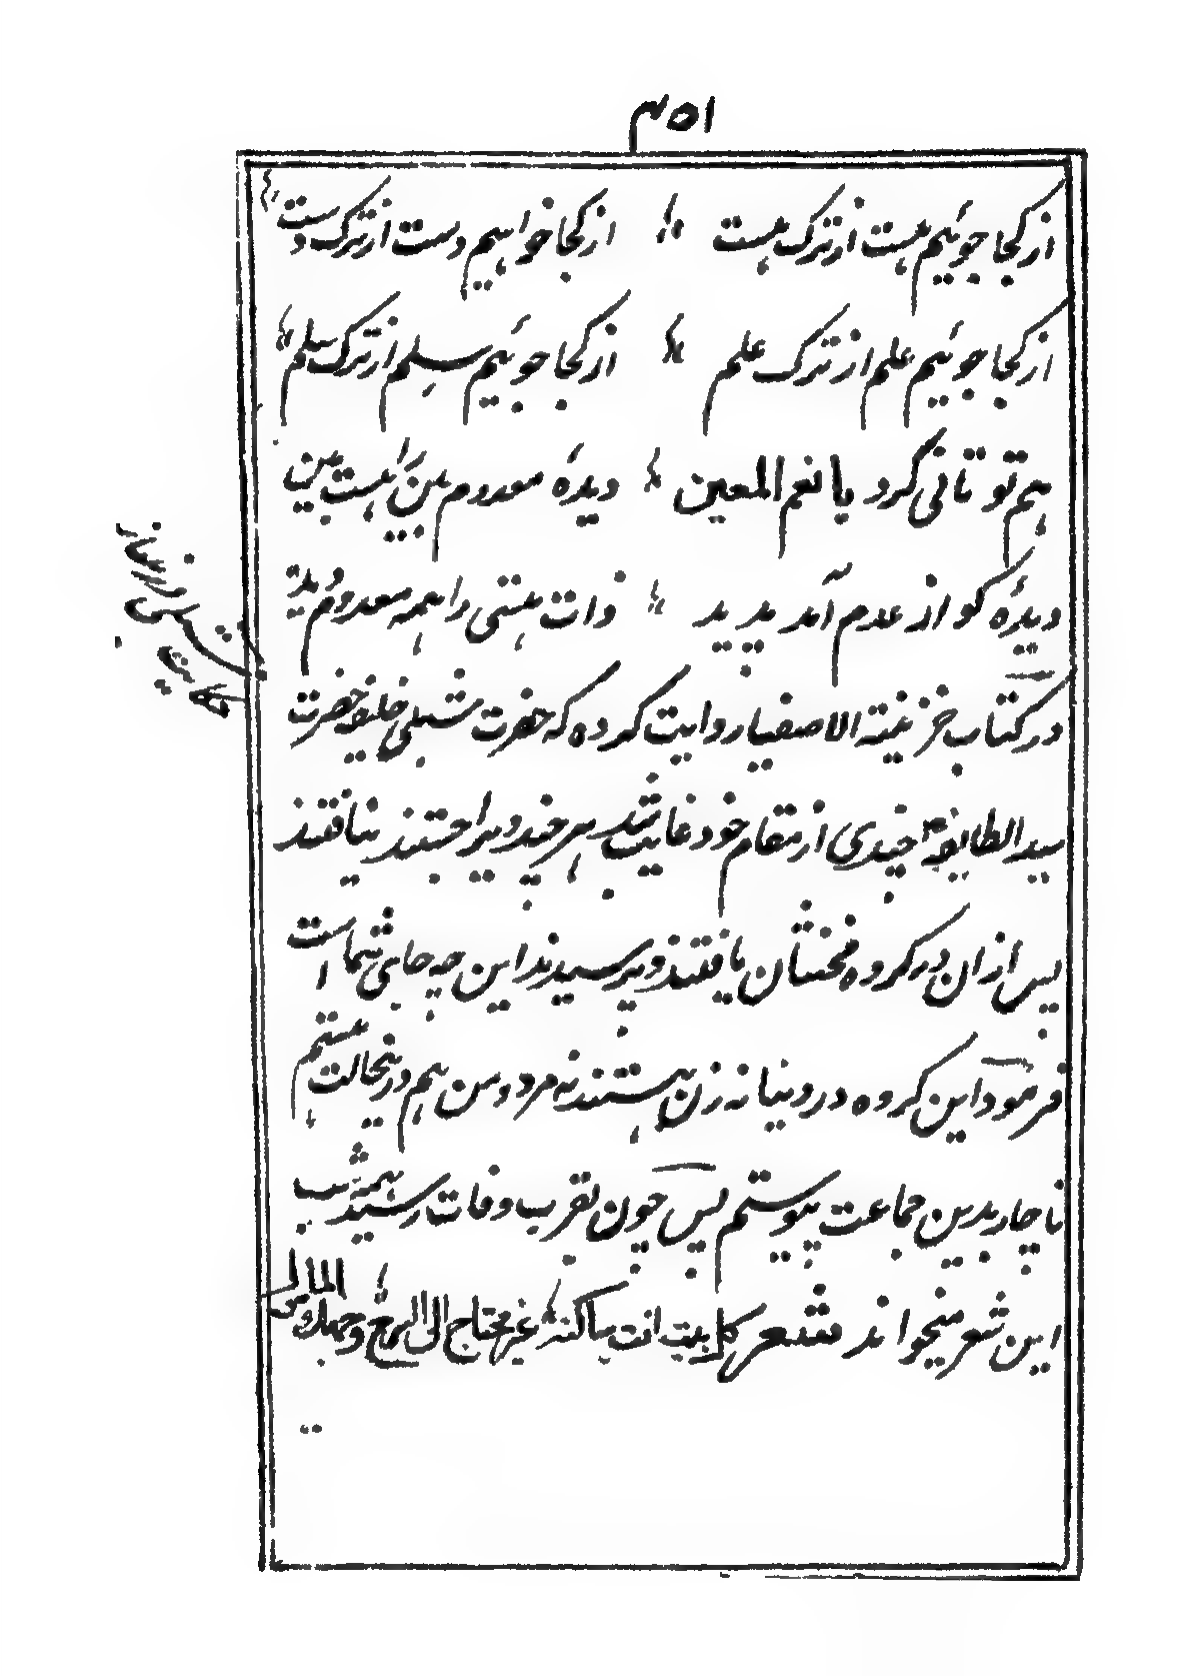 ۳۵۱
از کجا جوئیم هست از ترک هست از کجا خواهیم دست از ترک دست
از کجا جوئیم علم از ترک علم از کجا جوئیم سلم از ترک سلم
هم تو تانی کرد یا نعم المعین دیدهٔ معدوم بین را هست بین
دیدهٔ کو از عدم آمد پدید ذات هستی را همه معدوم دید
در کتاب خزینة الاصفیا روایت کرده که حضرت شبلی خلیفه حضرت
سید الطایفه چندی از مقام خود غایب شد هر چند ویرا جستند نیافتند
پس ازان در کروه مخنثان یافتند و پرسیدند این چه جای شما است
فرمود این کروه در دنیا نه زن هستند نه مرد و من هم درینحالت هستم
ناچار بدین جماعت پیوستم پس چون بقرب وفات رسید همه شب
این شعر میخواند شعر کل بیت انت ساکنه غیر محتاج الی السرج وجهک المامول
حکایت